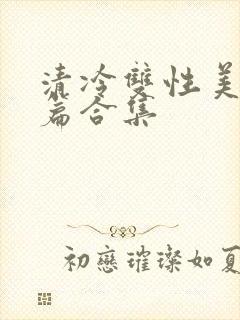 清冷雙性美
篇合集
初戀璀璨如夏